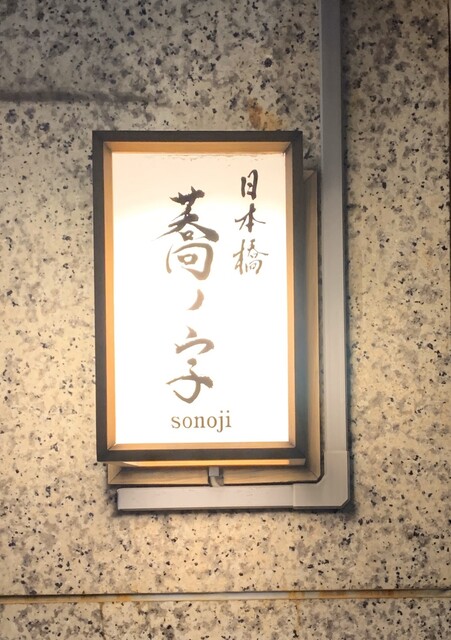 日本橋
蕎ノ字
sonoji